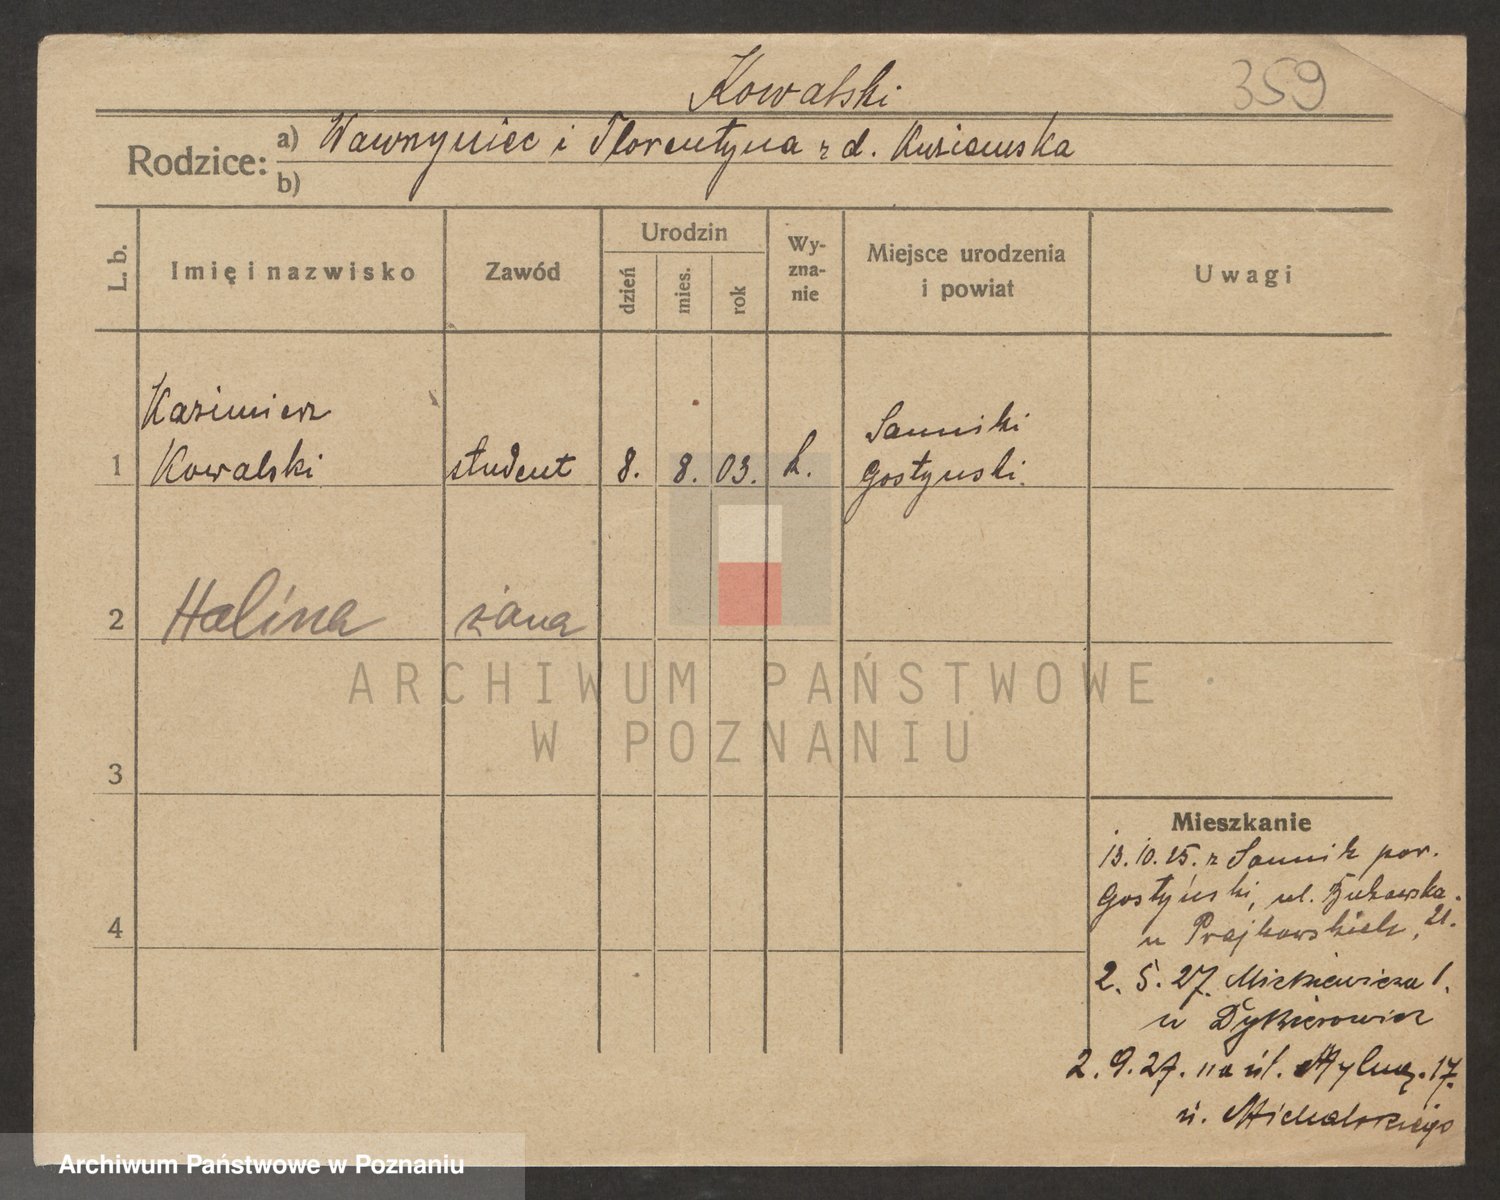 Kowalski
359
Rodzice: a) Wawrzyniec i Florentyna z d. Kusiewska
b)
L. b.
Imię i nazwisko
Zawód
Urodzin
dzień
mies.
rok
Wy-
zna-
nie
Miejsce urodzenia
i powiat
Uwagi
Kazimierz
1 Kowalski student 8. 8. 03. k.
Sanniki
Gostyński.
2 Halina żona
ARCHIWUM PAŃSTWOWE
W POZNANIU
3
4
Mieszkanie
13.10.25. z Sannik pow.
Gostyński, ul. Bukowska
u 21.
2. 5. 27. Mickiewicza 1.
u
2. 9. 27. na ul. Mylną. 17.
u. Michalskiego
Archiwum Państwowe w Poznaniu